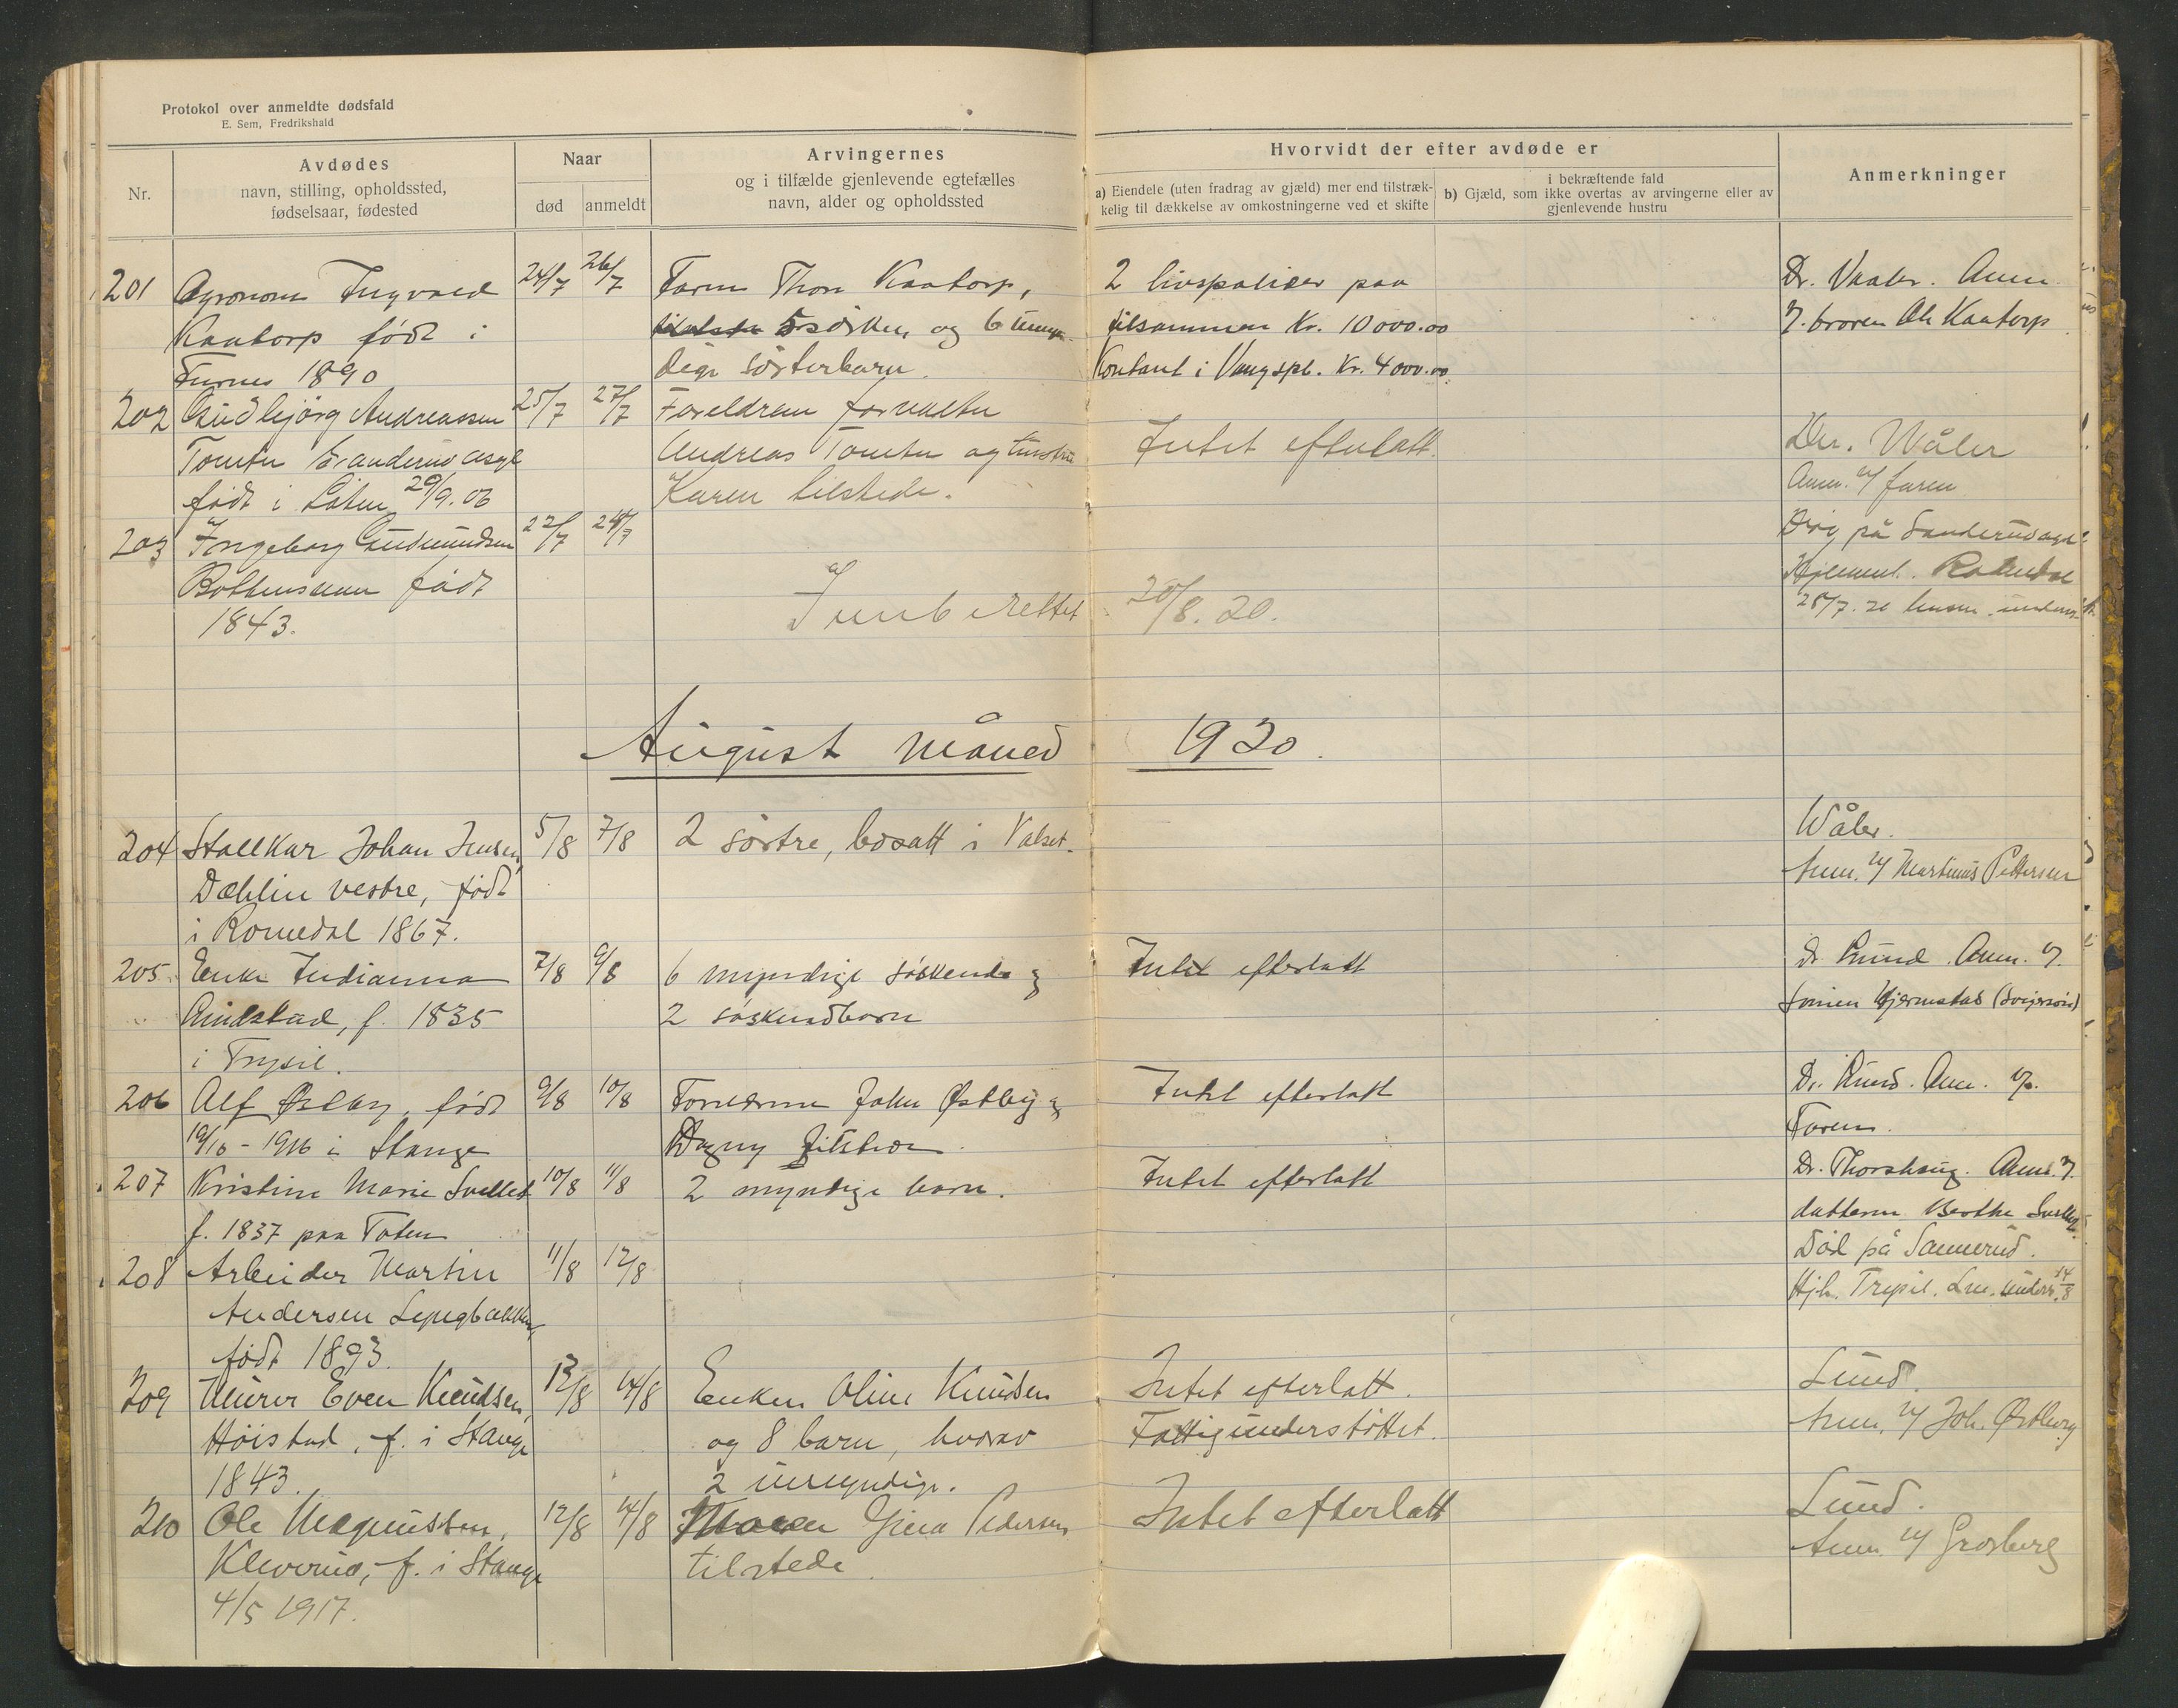 Protokol over anmeldte dødsfald
E. Sem, Fredrikshald
Nr.
Avdødes
navn, stilling, opholdssted,
fødselsaar, fødested
Naar
død
anmeldt
Arvingernes
og i tilfælde gjenlevende egtefælles
navn, alder og opholdssted
Hvorvidt der efter avdøde er
a) Eiendele (uten fradrag av gjæld) mer end tilstræk-
kelig til dækkelse av omkostningerne ved et skifte
i bekræftende fald
b) Gjæld, som ikke overtas av arvingerne eller av
gjenlevende hustru
Anmerkninger
201 Agronom Ingvald 24/7 26/7 Thore Kaatorp, 2 livspoliser paa Dr. Vaaler. Anm.
Kaatorp født i 5 søsken og 6 tilsammen Kr. 10 000.00 v. broren Ole Kaatorp
Furnes 1890 dige søsterbarn. Kontant i Vangspb. Kr. 4 000.00
202 Gudbjørg Andreassen 25/7 27/7 Foreldrene forvalter Intet efterlatt. Dr. Wåler
Tomter Sanderud asyl Andreas Tomter og hustru Anm. v/ faren
født i Løten 29/9.06 Karen tilstede.
203 Ingeborg Gudmundsen 22/7 24/7 Død på Sanderud asyl.
født Hjemmeh. Romedal
1843. Innberettet 20/8.20. 28/7.20 lensm. underr.
August måned 1920.
204 Stallkar Johan Jensen 5/8 7/8 2 søstre, bosatt i Valset. Wåler.
Dæhlin vestre, født Anm. v/ Martinus Pettersen
i Romedal 1867.
205. Enke Indianna 7/8 9/8 6 myndige søskende og Intet efterlatt Dr. Lund. Anm. v.
Rindstad, f. 1835 2 søskendbarn Hjermstad (Svigersøn)
i Trysil.
206 Alf Østby, født 9/8 10/8 Forældrene John Østby og Intet efterlatt Dr. Lund. Anm. v.
19/10 - 1916 i Stange Dagny tilstede. Faren.
207 Kristine Marie 10/8 11/8 2 myndige barn. Intet efterlatt Dr. Thorshaug. Anm. v.
f. 1837 paa Toten datteren Berthe
208 Arbeider Martin 11/8 12/8 Død på Sannerud.
Andersen Hjh. Trysil. Lm. underr. 14/8
født 1893.
209 Murer Even Knudsen, 13/8 14/8 Enken Oline Knudsen Intet efterlatt. Lund.
Høistad, f. i Stange og 8 barn, hvorav Fattigunderstøttet. Anm. v/ Joh. Østberg
1843. 2 umyndige.
210 Ole Magnussen, 12/8 14/8 Moren Gina Pedersen Intet efterlatt Lund.
Kleverud, f. i Stange tilstede. Anm. v/ Grosberg
4/5 1917.